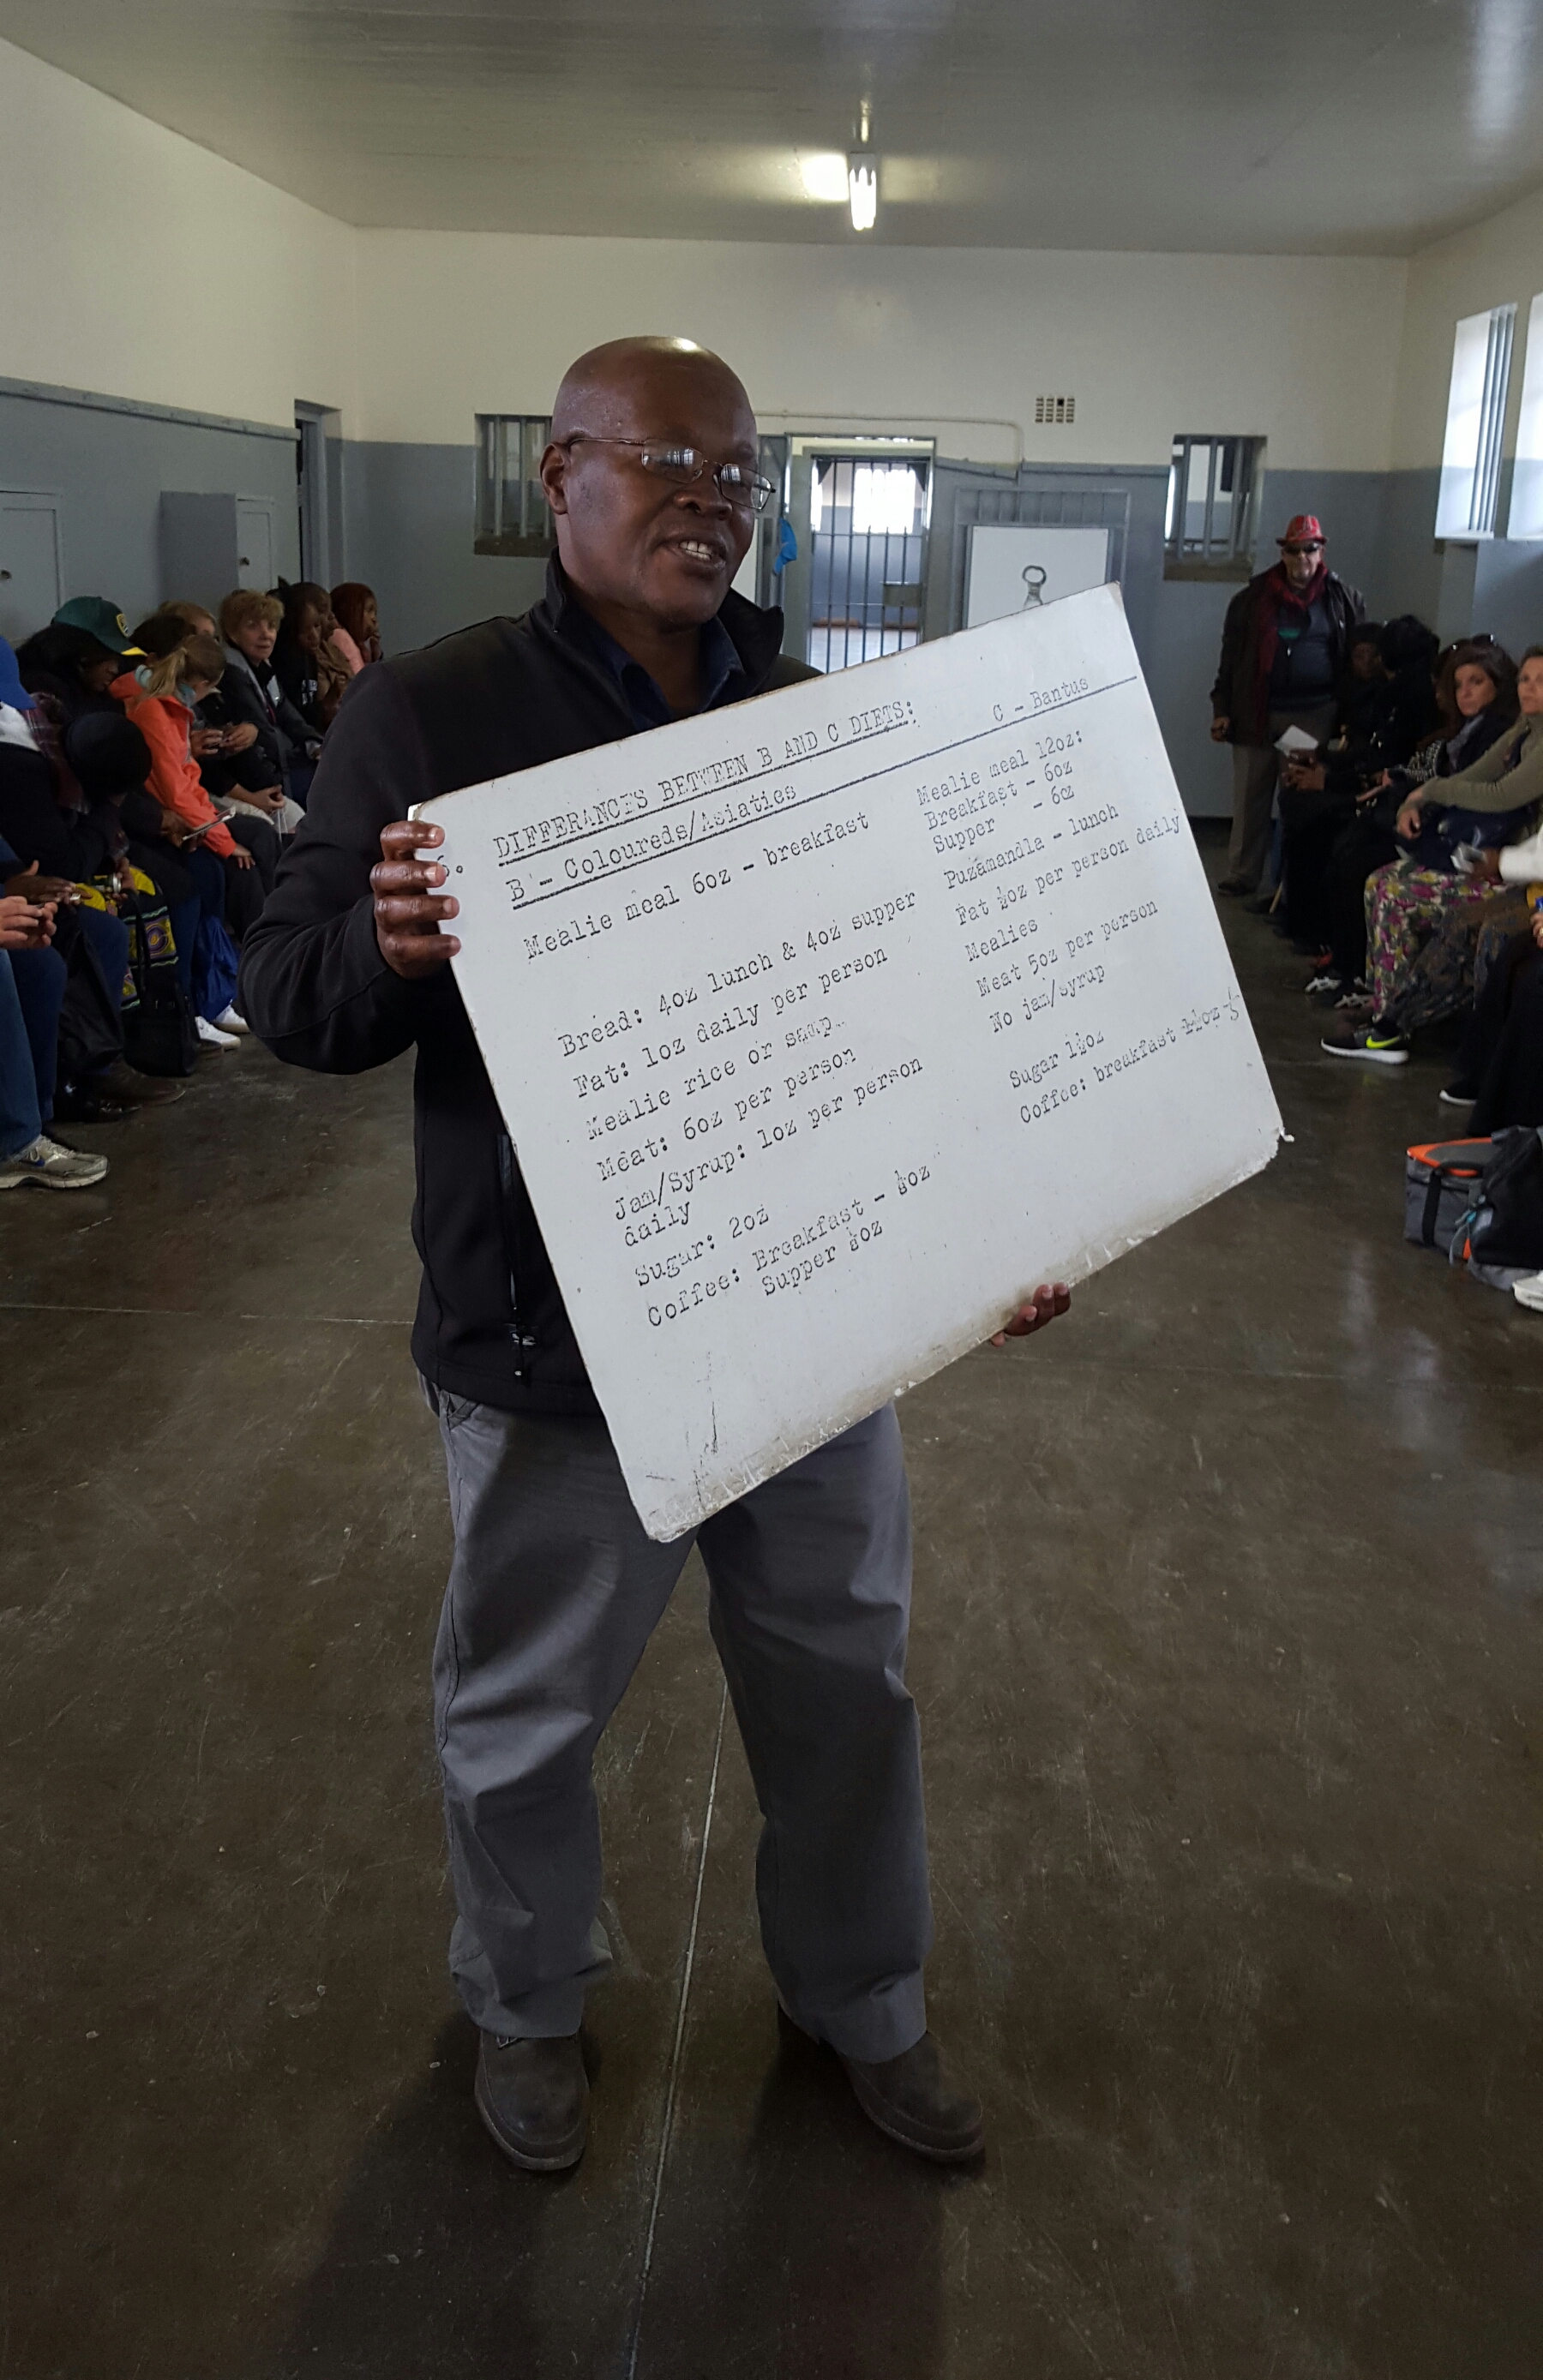 DIFFERANCES BETWEEN B AND C DIETS:
B - Coloureds/Asiatics
C - Bantus
Mealie meal 6oz - breakfast
Bread: 4oz lunch & 4oz supper
Fat: 1oz daily per person
Mealie rice or samp
Meat: 6oz per person
Jam/Syrup: 1oz per person
daily
Sugar: 2oz
Coffee: Breakfast - ¼oz
Supper ¼oz
Mealie meal 12oz:
Breakfast - 6oz
Supper - 6oz
Puzamandla - lunch
Fat ½oz per person daily
Mealies
Meat 5oz per person
No jam/syrup
Sugar 1½oz
Coffee: breakfast